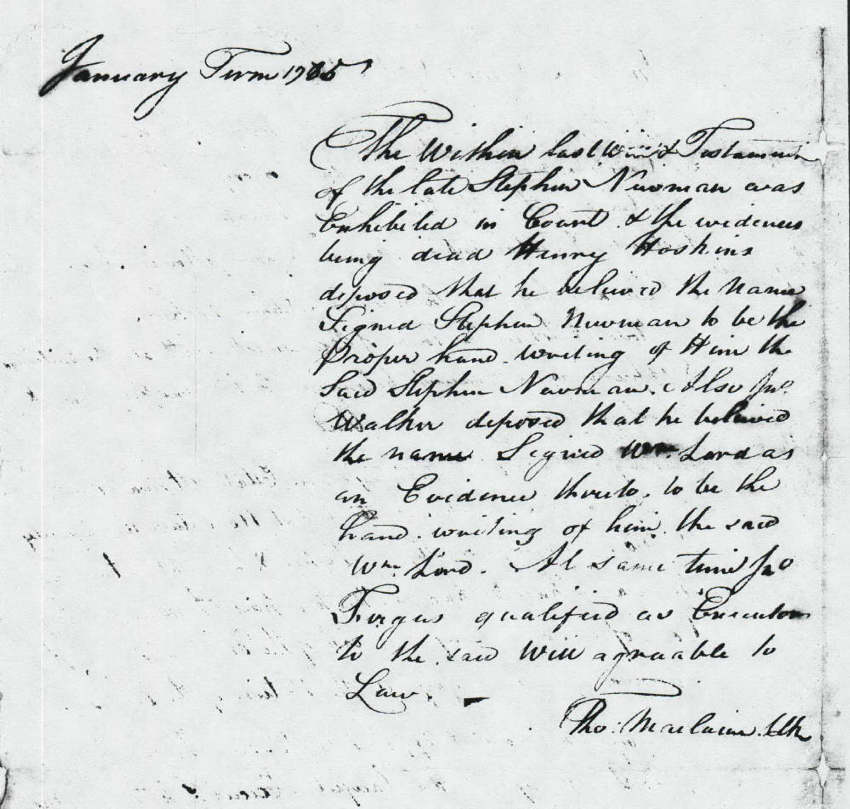 January Term 1785
The Within last Will & Testament
of the late Stephen Newman was
Exhibited in Court & the evidences
being dead Henry Hoskins
deposed that he believed the Name
Signed Stephen Newman to be the
Proper hand writing of Him the
Said Stephen Newman. Also Jno.
Walker deposed that he believed
the name Signed Wm. Lord as
an Evidence thereto. to be the
hand writing of him the said
Wm. Lord. At same time Jno
Fergus qualified as Executor
to the said Will agreable to
Law.
Tho: Maclaine Clk